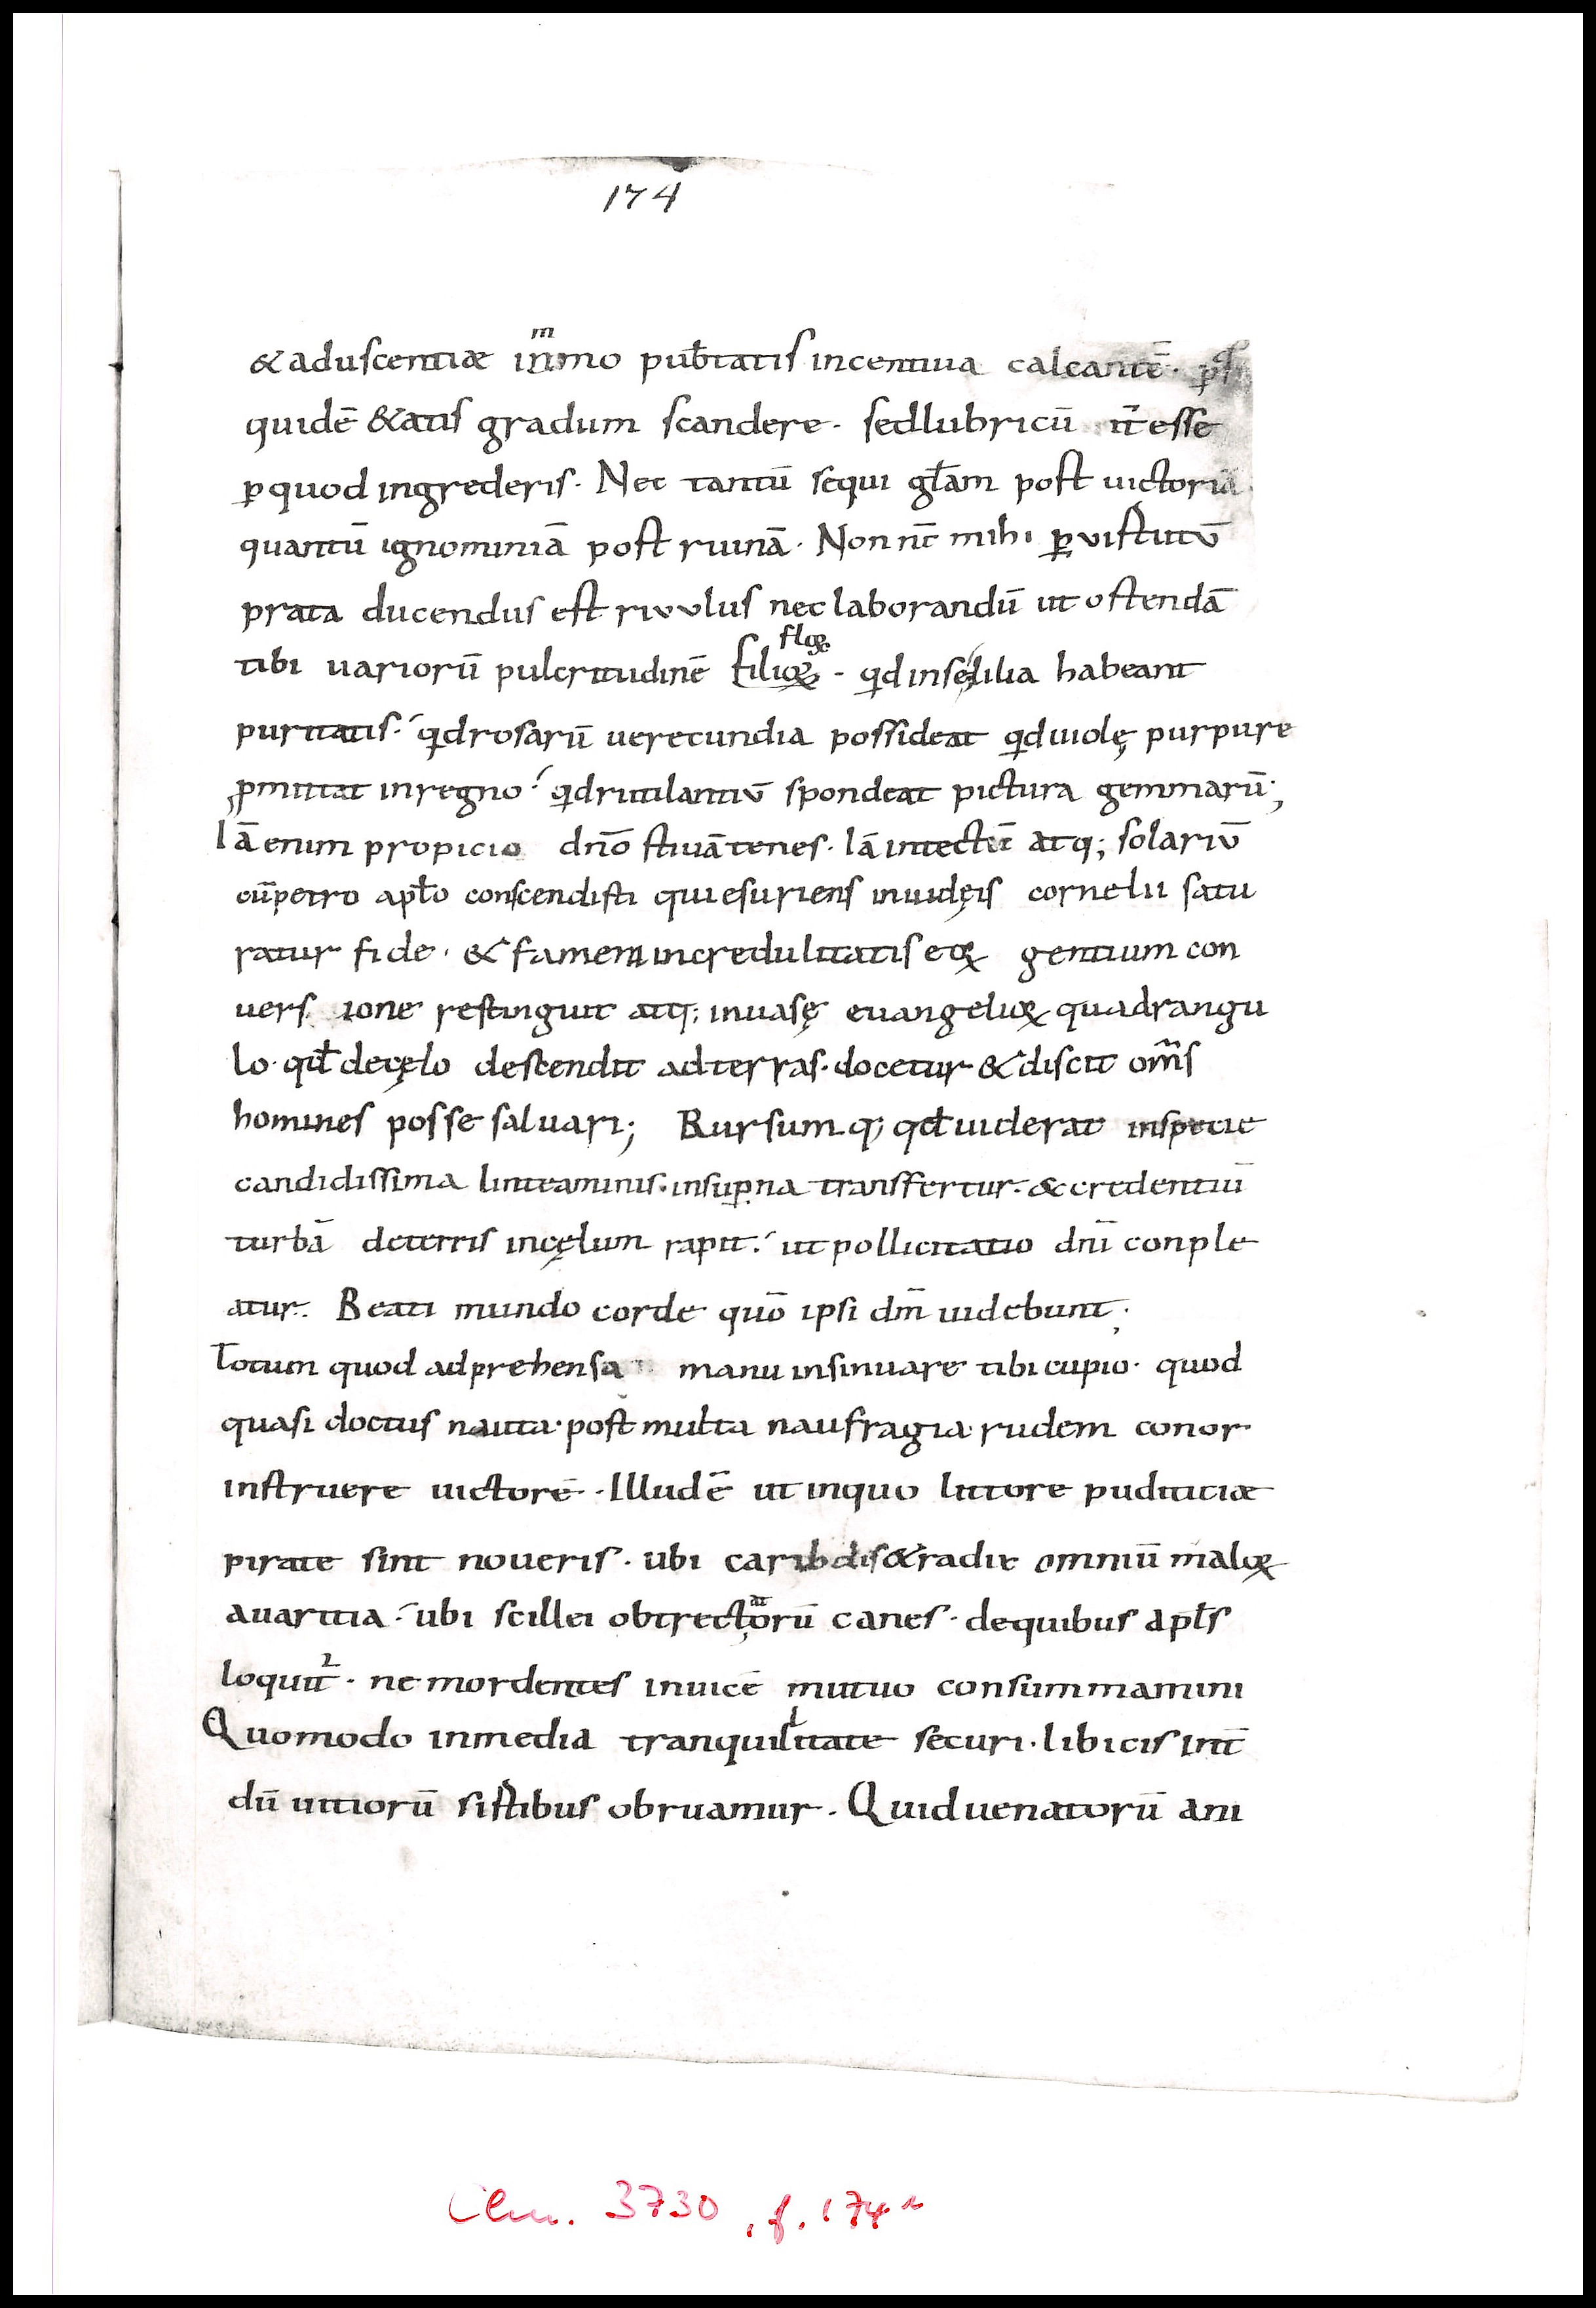 174
m
&aduscentiæ inmo pub̄tatis incentiua calcantē·
quidē &atis gradum scandere· sedlubricū it̄ esse
ꝑquodingrederis· Nec tantū sequi gl̄am post uictoriā·
quantū ignominiā post ruinā· Non nc̄ mihi ꝑ uistutū
prata ducendus est riuulus nec laborandū ut ostendā
floꝝ
tibi uariorū pulcritudinē filioꝝ· qͥd inse lilia habeant
puritatis· qͥdrosarū uerecundia possideat qͥduiolę purpure
ꝓmittat inregno qͥdrutilantiū spondeat pictura gemmarū;
Iā enim propicio dn̄o stiuātenes· Iā intectū atq; solariū
cū̄petro apl̄o conscendisti qui esuriens iniudęis cornelii satu
ratur fide· & famem incredulitatis eoꝝ gentium con
uers ione restinguit atq; inuasę euangelioꝝ quadrangu
lo· qd̄ decęlo descendit adterras· docetur & discit om̄s
homines posse saluari; Rursumq; qd̄ uiderat inspecie
candidissima linteaminis· insuꝑna transffertur· & credentiū
turbā deterris incęlum rapit· ut pollicitatio dn̄i conple
atur· Beati mundo corde quō ipsi dm̄ uidebunt;
Totum quod adprehensa manu insinuare tibi cupio· quod
quasi doctus nauta· post multa naufragia rudem conor
instruere uictorē· Illudē ut inquo littore puditiciæ
pirate sint noueris· ubi caribdis & radix omniū maloꝝ
auaritia· ubi scillei obtrectatorū canes· dequibus apl̄s
loquit᷑· ne mordentes inuicē mutuo consummamini
Quomodo inmedia tranquillitate securi· libicis int̄
dū uitiorū sistibus obruamur· Quid uenatorū ani
Clm. 3730, f. 174ʳ